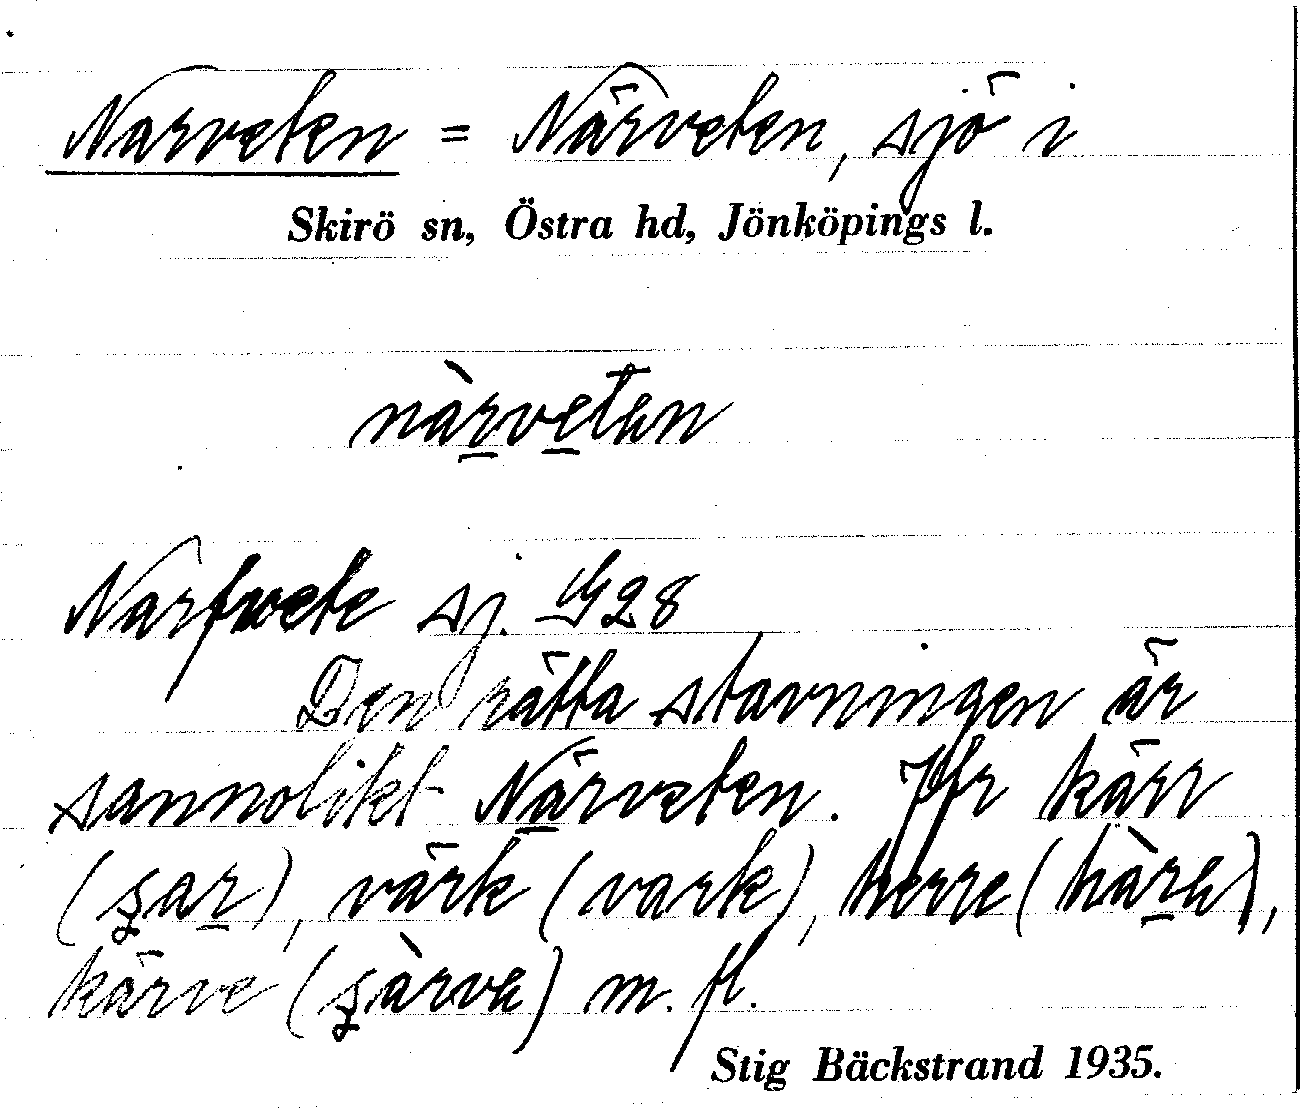 Narveten = Närveten, sjö i
Skirö sn, Östra hd, Jönköpings l.
nàrveten
Narfwete sj. G28
Den rätta stavningen är
sannolikt Närveten. Jfr kärr
(şar), värk (vark), herre (hàre),
kärve (şàrve) m. fl.
Stig Bäckstrand 1935.